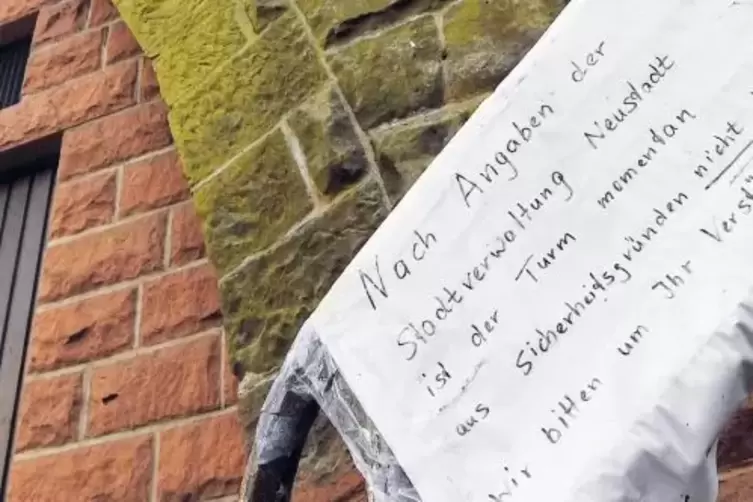 Nach Angaben der
Stadtverwaltung Neustadt
ist der Turm momentan
aus Sicherheitsgründen nicht
Wir bitten um Ihr